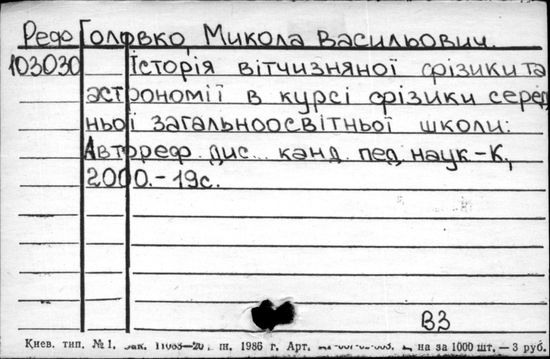 Реф Головко Микола Васильович.
103030 Історія вітчизняної фізики та
астрономії в курсі фізики серед
ньої загальноосвітньої школи:
Автореф. дис... канд. пед. наук.-К.,
2000.-19с.
ВЗ
Киев. тип. №1. Зак. 1986 г. Арт. на за 1000 шт. — 3 руб.